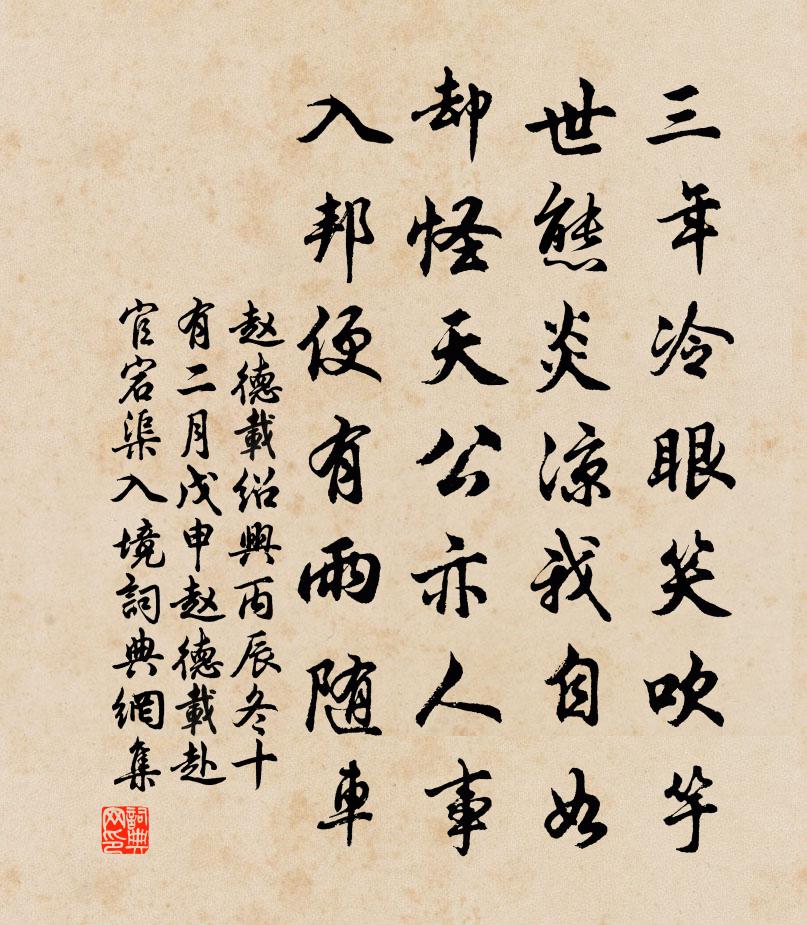 三年冷眼笑吹竽
世態炎涼我自如
却怪天公亦人事
入邦便有雨随車
赵德載绍興丙辰冬十
有二月戊申赵德載赴
官宕渠入境詞典網集
詞典网印